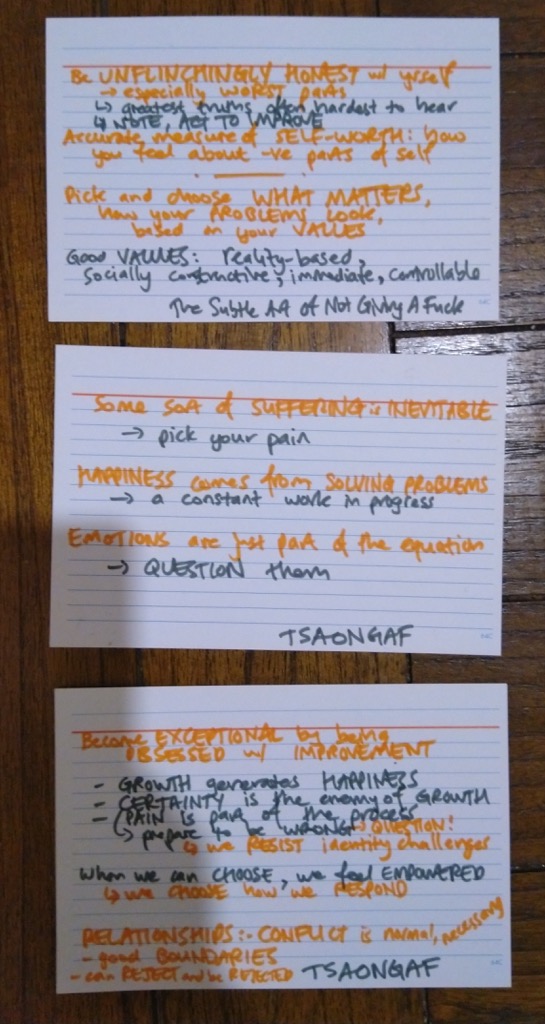 Be UNFLINCHINGLY HONEST w/ yrself
→ especially WORST parts
↳ greatest truths often hardest to hear
↳ NOTE, ACT TO IMPROVE
Accurate measure of SELF-WORTH: how
you feel about -ve parts of self
Pick and choose WHAT MATTERS,
how your PROBLEMS look,
based on your VALUES
Good VALUES: reality-based,
socially constructive, immediate, controllable
The Subtle Art of Not Giving A Fuck
Some sort of SUFFERING is INEVITABLE
→ pick your pain
HAPPINESS comes from SOLVING PROBLEMS
→ a constant work in progress
EMOTIONS are just part of the equation
→ QUESTION them
TSAONGAF
Become EXCEPTIONAL by being
OBSESSED w/ IMPROVEMENT
- GROWTH generates HAPPINESS
- CERTAINTY is the enemy of GROWTH
- PAIN is part of the process
↳ prepare to be WRONG → QUESTION!
↳ we RESIST identity challenges
When we can CHOOSE, we feel EMPOWERED
↳ we CHOOSE how we RESPOND
RELATIONSHIPS:- CONFLICT is normal, necessary
- good BOUNDARIES
- can REJECT and be REJECTED TSAONGAF